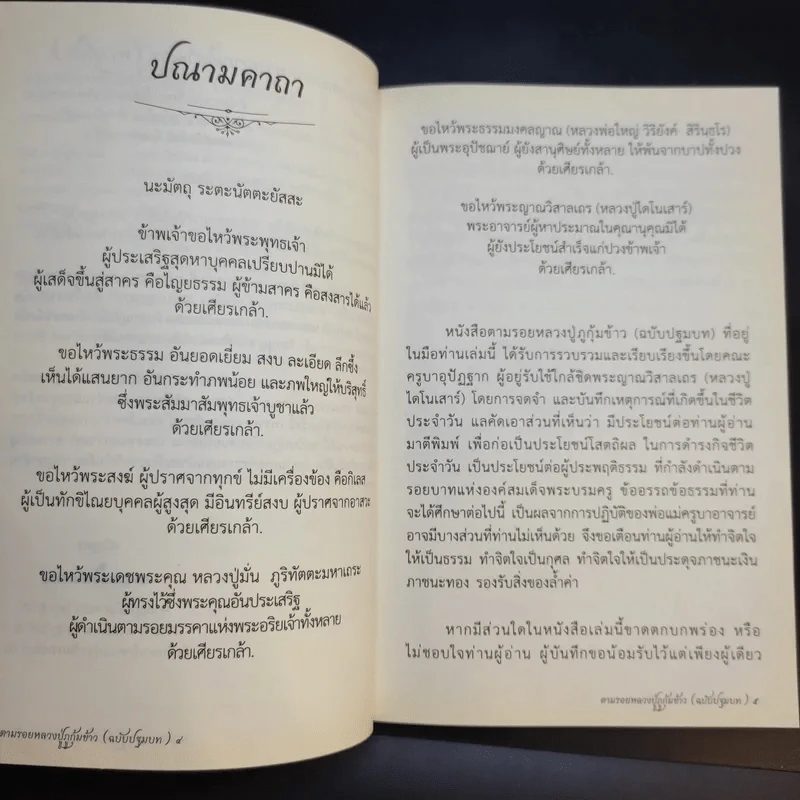 ปณามคาถา
นะมัตถุ ระตะนัตตะยัสสะ
ข้าพเจ้าขอไหว้พระพุทธเจ้า
ผู้ประเสริฐสุดหาบุคคลเปรียบปานมิได้
ผู้เสด็จขึ้นสู่สาคร คือไญยธรรม ผู้ข้ามสาคร คือสงสารได้แล้ว
ด้วยเศียรเกล้า.
ขอไหว้พระธรรม อันยอดเยี่ยม สงบ ละเอียด ลึกซึ้ง
เห็นได้แสนยาก อันกระทำภพน้อย และภพใหญ่ให้บริสุทธิ์
ซึ่งพระสัมมาสัมพุทธเจ้าบูชาแล้ว
ด้วยเศียรเกล้า.
ขอไหว้พระสงฆ์ ผู้ปราศจากทุกข์ ไม่มีเครื่องข้อง คือกิเลส
ผู้เป็นทักขิไณยบุคคลผู้สูงสุด มีอินทรีย์สงบ ผู้ปราศจากอาสวะ
ด้วยเศียรเกล้า.
ขอไหว้พระเดชพระคุณ หลวงปู่มั่น ภูริทัตตะมหาเถระ
ผู้ทรงไว้ซึ่งพระคุณอันประเสริฐ
ผู้ดำเนินตามรอยมรรคาแห่งพระอริยเจ้าทั้งหลาย
ด้วยเศียรเกล้า.
ตามรอยหลวงปู่ภูกุ้มข้าว (ฉบับปฐมบท ) ๔
ขอไหว้พระธรรมมงคลญาณ (หลวงพ่อใหญ่ วิริยังค์ สิรินฺธโร)
ผู้เป็นพระอุปัชฌาย์ ผู้ยังสานุศิษย์ทั้งหลาย ให้พ้นจากบาปทั้งปวง
ด้วยเศียรเกล้า.
ขอไหว้พระญาณวิสาลเถร (หลวงปู่ไดโนเสาร์)
พระอาจารย์ผู้หาประมาณในคุณานุคุณมิได้
ผู้ยังประโยชน์สำเร็จแก่ปวงข้าพเจ้า
ด้วยเศียรเกล้า.
หนังสือตามรอยหลวงปู่ภูกุ้มข้าว (ฉบับปฐมบท) ที่อยู่
ในมือท่านเล่มนี้ ได้รับการรวบรวมและเรียบเรียงขึ้นโดยคณะ
ครูบาอุปัฏฐาก ผู้อยู่รับใช้ใกล้ชิดพระญาณวิสาลเถร (หลวงปู่
ไดโนเสาร์) โดยการจดจำ และบันทึกเหตุการณ์ที่เกิดขึ้นในชีวิต
ประจำวัน แลคัดเอาส่วนที่เห็นว่า มีประโยชน์ต่อท่านผู้อ่าน
มาตีพิมพ์ เพื่อก่อเป็นประโยชน์โสตถิผล ในการดำรงกิจชีวิต
ประจำวัน เป็นประโยชน์ต่อผู้ประพฤติธรรม ที่กำลังดำเนินตาม
รอยบาทแห่งองค์สมเด็จพระบรมครู ข้ออรรถข้อธรรมที่ท่าน
จะได้ศึกษาต่อไปนี้ เป็นผลจากการปฏิบัติของพ่อแม่ครูบาอาจารย์
อาจมีบางส่วนที่ท่านไม่เห็นด้วย จึงขอเตือนท่านผู้อ่านให้ทำจิตใจ
ให้เป็นธรรม ทำจิตใจเป็นกุศล ทำจิตใจให้เป็นประดุจภาชนะเงิน
ภาชนะทอง รองรับสิ่งของล้ำค่า
หากมีส่วนใดในหนังสือเล่มนี้ขาดตกบกพร่อง หรือ
ไม่ชอบใจท่านผู้อ่าน ผู้บันทึกขอน้อมรับไว้แต่เพียงผู้เดียว
ตามรอยหลวงปู่ภูกุ้มข้าว (ฉบับปฐมบท ) ๕